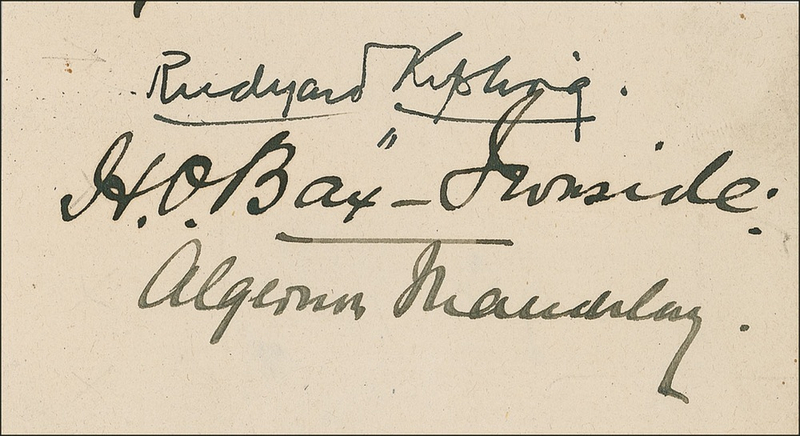 Rudyard Kipling.
H.O. Bax-Ironside.
Algernon Maudslay.